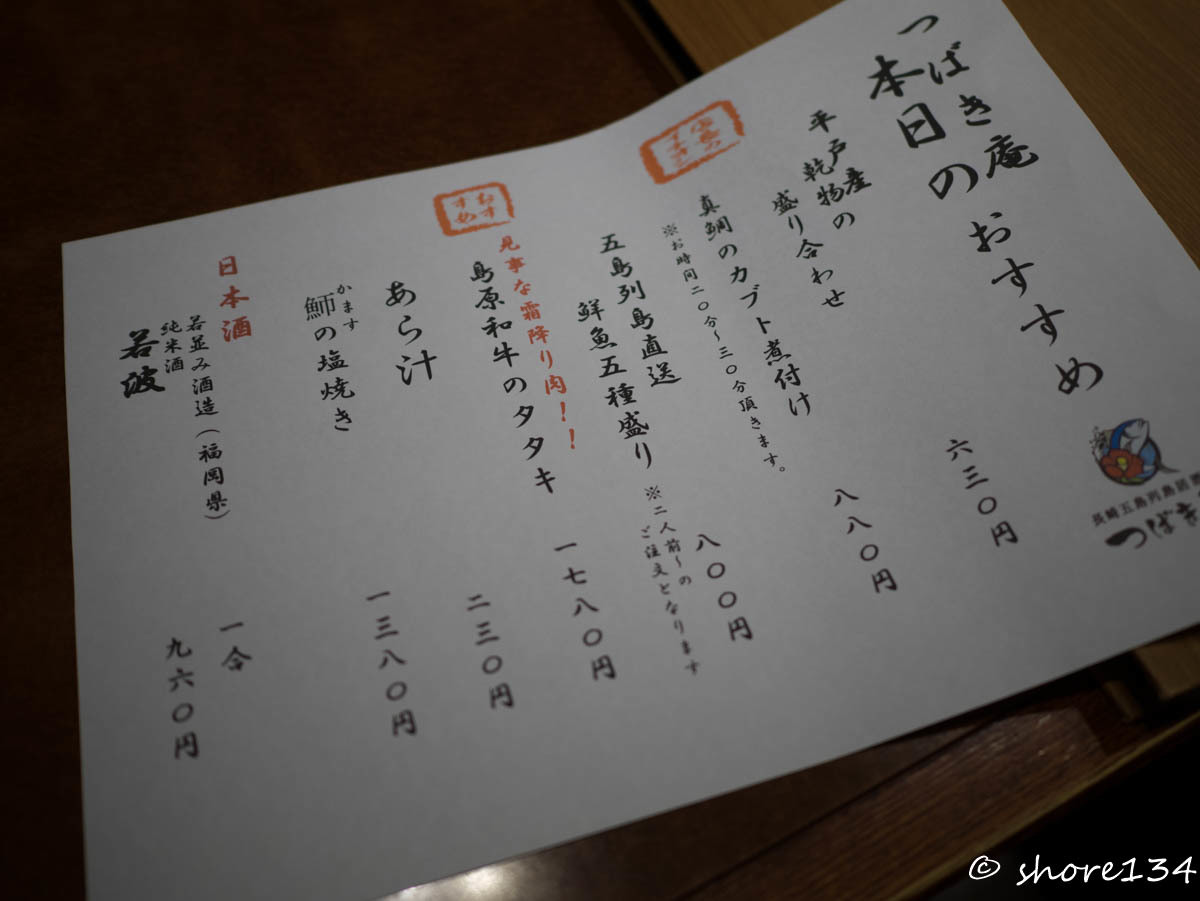 つばき庵
本日のおすすめ
平戸産
乾物の
盛り合わせ
六三〇円
真鯛のカブト煮付け
八八〇円
※お時間二〇分～三〇分頂きます。
五島列島直送
鮮魚五種盛り
八〇〇円
※二人前～の
ご注文となります
おす
すめ
見事な霜降り肉！！
島原和牛のタタキ
一七八〇円
あら汁
二三〇円
かます
魳の塩焼き
一三八〇円
日本酒
若並み酒造（福岡県）
純米酒
若波
一合
九六〇円
長崎五島列島居
つばき
© shore134